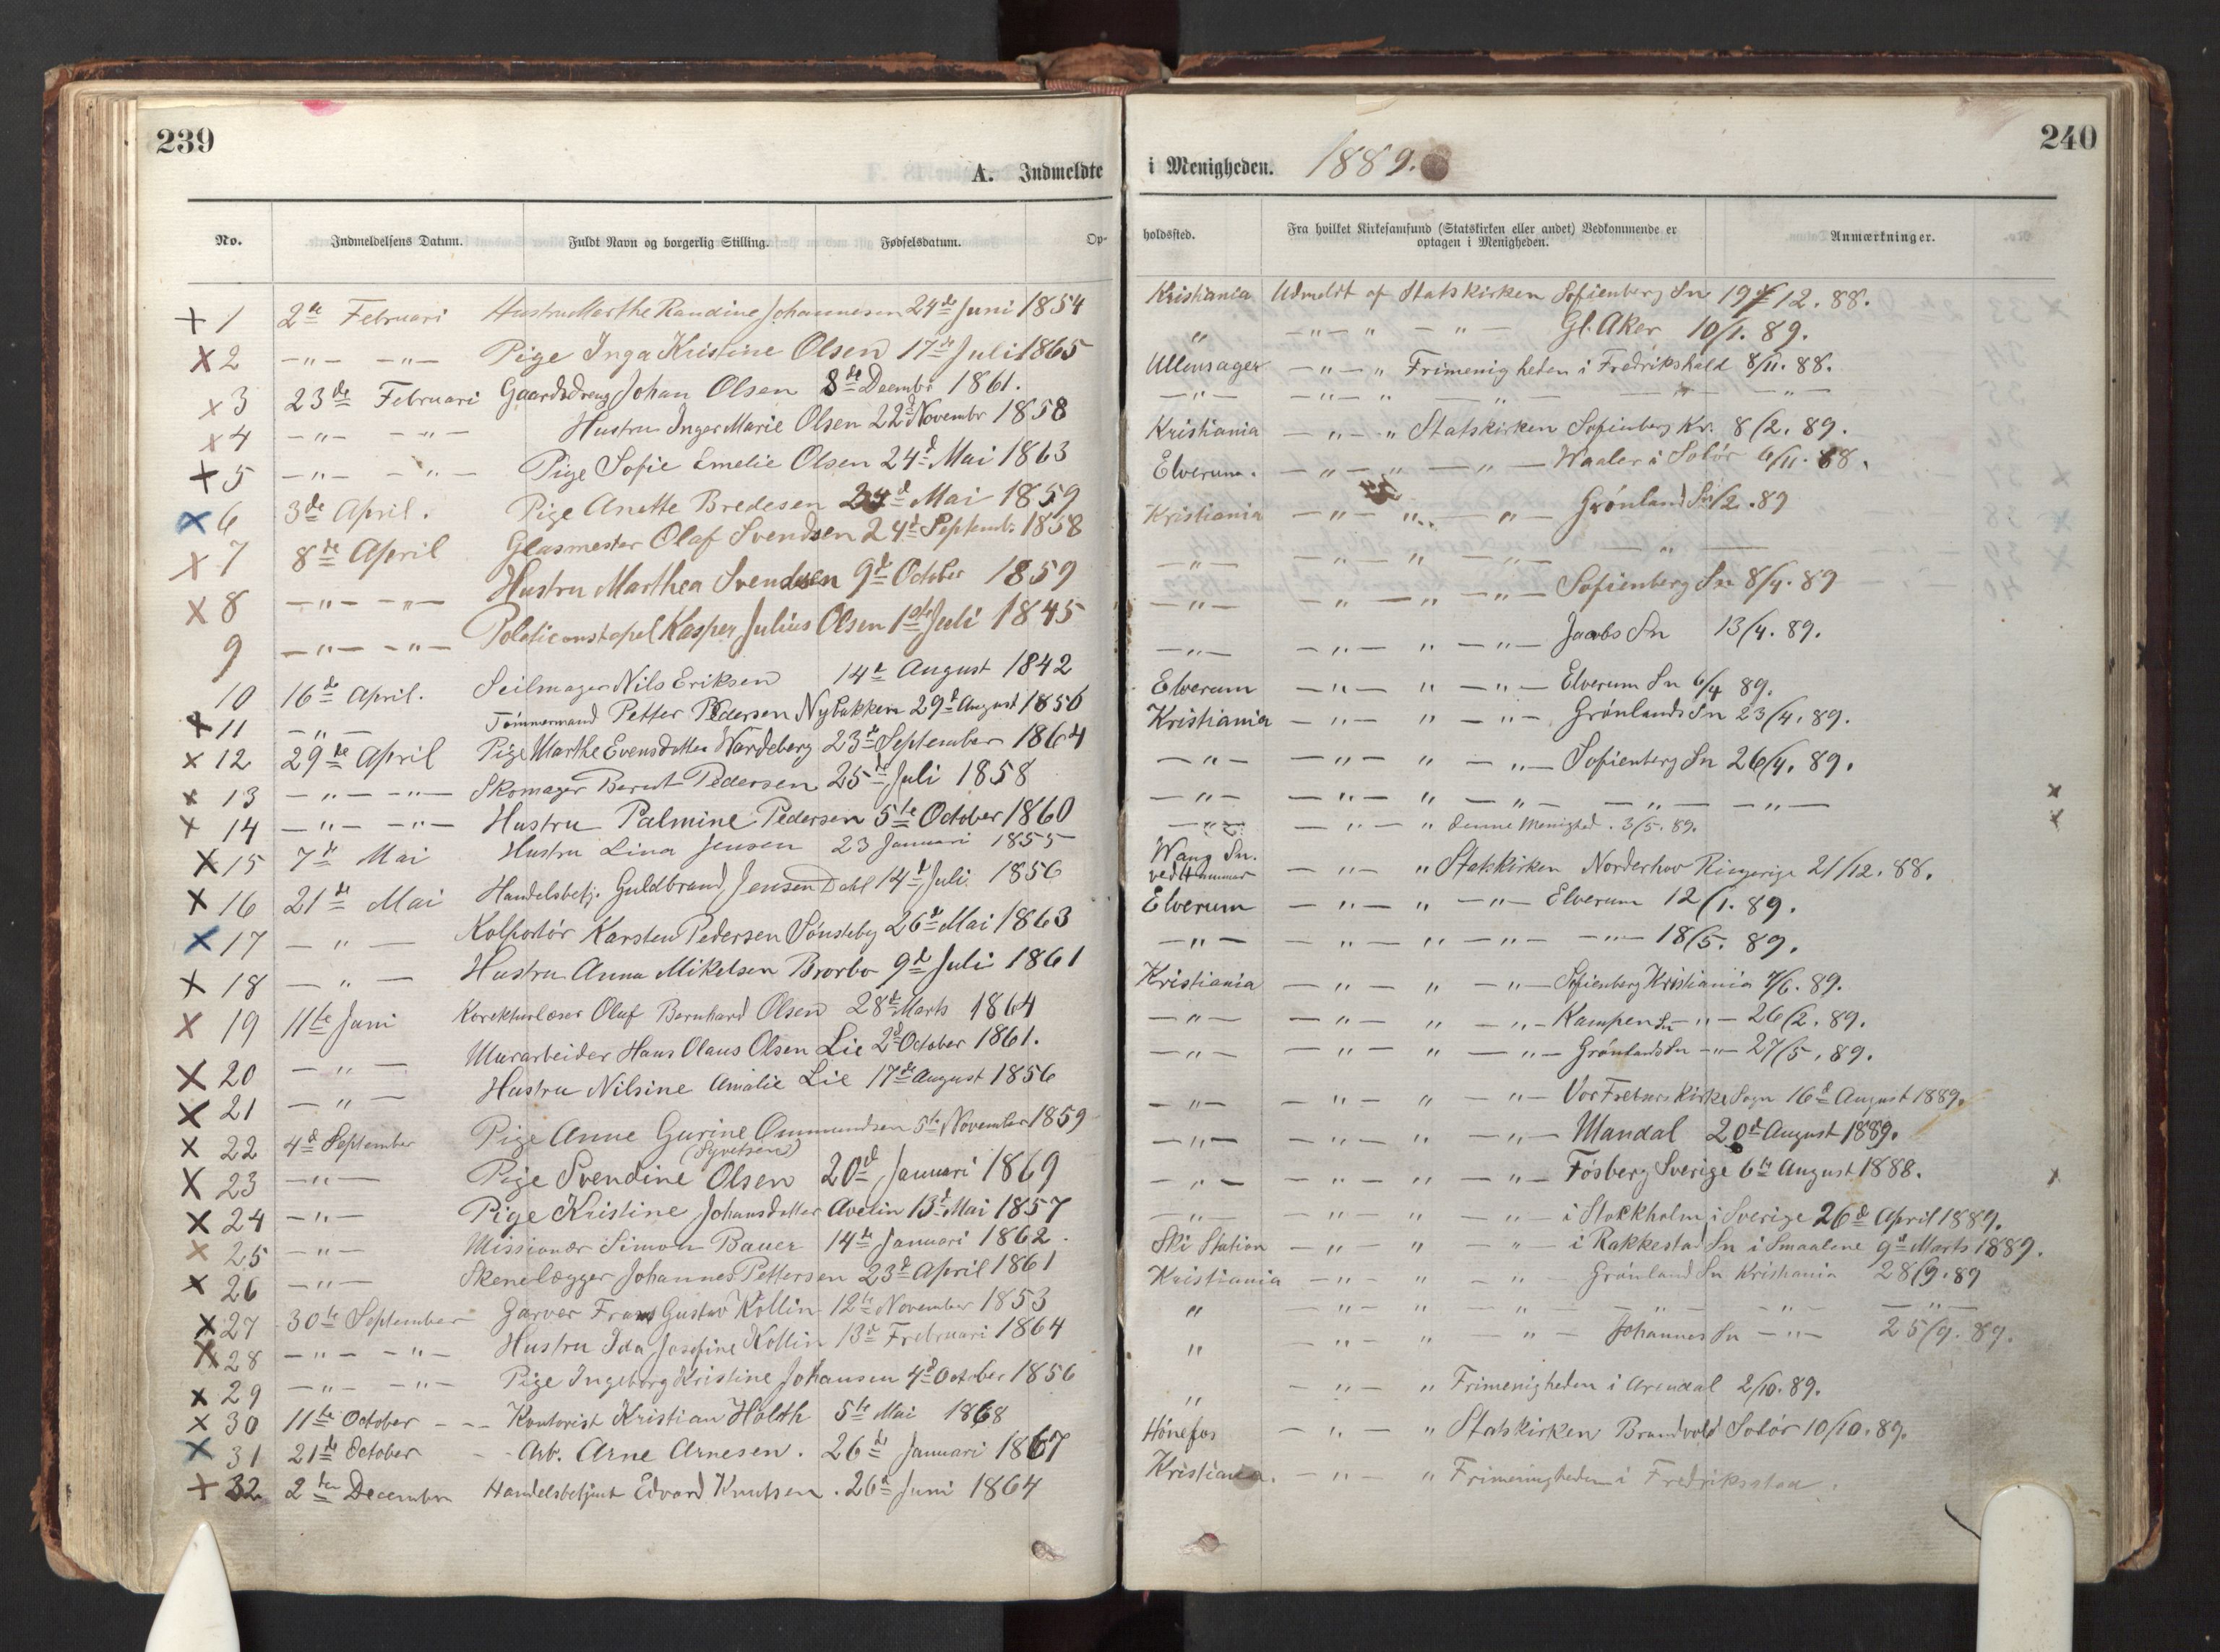 239
A. Indmeldte
No. Indmeldelsens Datum. Fuldt Navn og borgerlig Stilling. Fødselsdatum. Op-
1 2de Februari Hustru Marthe Randine Johannesen 24de Juni 1854
2 — " — — " — Pige Inga Kristine Olsen 17de Juli 1865
3 23de Februari Gaardsdreng Johan Olsen 8de Decembr 1861.
4 — " — — " — Hustru Inger Marie Olsen 22d Novembr 1858
5 — " — — " — Pige Sofie Emelie Olsen 24d Mai 1863
6 3de April. Pige Anette Bredesen 24d Mai 1859
7 8de April Glasmester Olaf Svendsen 24d Septembr 1858
8 — " — — " — Hustru Marthea Svendsen 9d October 1859
9 — " — — " — Politiconstapel Kasper Julius Olsen 1ste Juli 1845
10 16de April. Seilmager Nils Eriksen 14d August 1842
11 — " — Tømmermand Petter Pedersen Nybakken 29d August 1856
12 29de April Pige Marthe Evensdatter Hardeberg 23d September 1864
13 — " — — " — Skomager Bernt Pedersen 25de Juli 1858
14 — " — — " — Hustru Palmine Pedersen 5te October 1860
15 7de Mai Hustru Lina Jensen 23 Januari 1855
16 21de Mai Handelsbetj. Guldbrand Jensen Dahl 14d Juli 1856
17 — " — Kolportør Karsten Pedersen Sønsteby 26d Mai 1863
18 — " — Hustru Anna Mikelsen Brorbo 9d Juli 1861
19 11te Juni Korekturlæser Oluf Bernhard Olsen 28d Marts 1864
20 — " — Murarbeider Hans Olaus Olsen Lie 2d October 1861.
21 — " — Hustru Nilsine Amalie Lie 17de August 1856
22 4d September Pige Anne Gurine Ommundsen 5te November 1859
(Syvetsen)
23 — " — Pige Svendine Olsen 20d Januari 1869
24 — " — Pige Kristine Johansdatter Avelin 13d Mai 1857
25 — " — Missionær Simon Bauer 14de Januari 1862.
26 — " — Skenelægger Johannes Pettersen 23d April 1861
27 30te September Garver Frans Gustav Kollin 12te November 1853
28 — " — — " — Hustru Ida Josefine Kollin 13d Frebruari 1864
29 — " — — " — Pige Ingeborg Kristine Johansen 4d October 1856
30 11te October - -- Kontorist Kristian Holth 5te Mai 1868
31 21de October - - Arb. Arne Arnesen. 26de Januari 1867
32 2den December Handelsbetjent Edvard Knutsen. 26d Juni 1864
240
i Menigheden. 1889.
holdssted. Fra hvilket Kirkesamfund (Statskirken eller andet) Vedkommende er optagen i Menigheden. Anmærkninger.
Kristiania Udmeldt af Statskirken Sofienberg Sn 19/12.88.
" — " — " — " — Gl. Aker 10/1.89.
Ullensager — " — " Frimenigheden i Fredrikshald 8/11.88.
— " — — " — " — " — — " — — " —
Kristiania — " — " Statskirken Sofienberg Kr. 8/2.89.
Elverum. — " — " — " — Waaler i Solør 6/11.88.
Kristiania — " — " — " — Grønland Sn /2.89
— " — — " — " — " — — " —
— " — — " — " — " — Sofienberg Sn 8/4.89
— " — — " — " — " — Jacobs Sn 13/4.89.
Elverum — " — " — " — Elverum Sn 6/4 89.
Kristiania — " — " — " — Grønlands Sn 23/4.89.
— " — — " — " — " — Sofienberg Sn 26/4.89.
— " — — " — " — " — — " — — " —
— " — — " — " denne Menighed. 3/5.89.
Wang Sn.
ved Hammer — " — " Statskirken Norderhov Ringerige 21/12.88.
Elverum — " — " — " — Elverum 12/1.89.
— " — — " — " — " — — " — 18/5.89.
Kristiania — " — " — " — Sofienberg Kristiania 7/6.89.
— " — — " — " — " — Kampen Sn — " — 26/2.89.
— " — — " — " — " — Grønlands Sn — " — 27/5.89.
— " — — " — " — " — Vor Frelsers Kirke Sogn 16d August 1889.
— " — — " — " — " — Mandal 20d August 1889.
— " — — " — " — " — Fösberg Sverige 6te August 1888.
— " — — " — " — " — i Stokkholm i Sverige 26d April 1889.
Ski Station — " — " — " — i Rakkestad Sn i Smaalene 9d Marts 1889.
Kristiania — " — " — " — Grønland Sn Kristiania 28/9.89
" — " — " — " — — " — — " — — " —
" — " — " — " — Johannes Sn — " — 25/9.89.
" — " — " Frimenigheden i Arendal 2/10.89.
Hønefos — " — " Statskirken Brandvold Solør 10/10.89.
Kristiania. — " — " Frimenigheden i Fredriksstad.